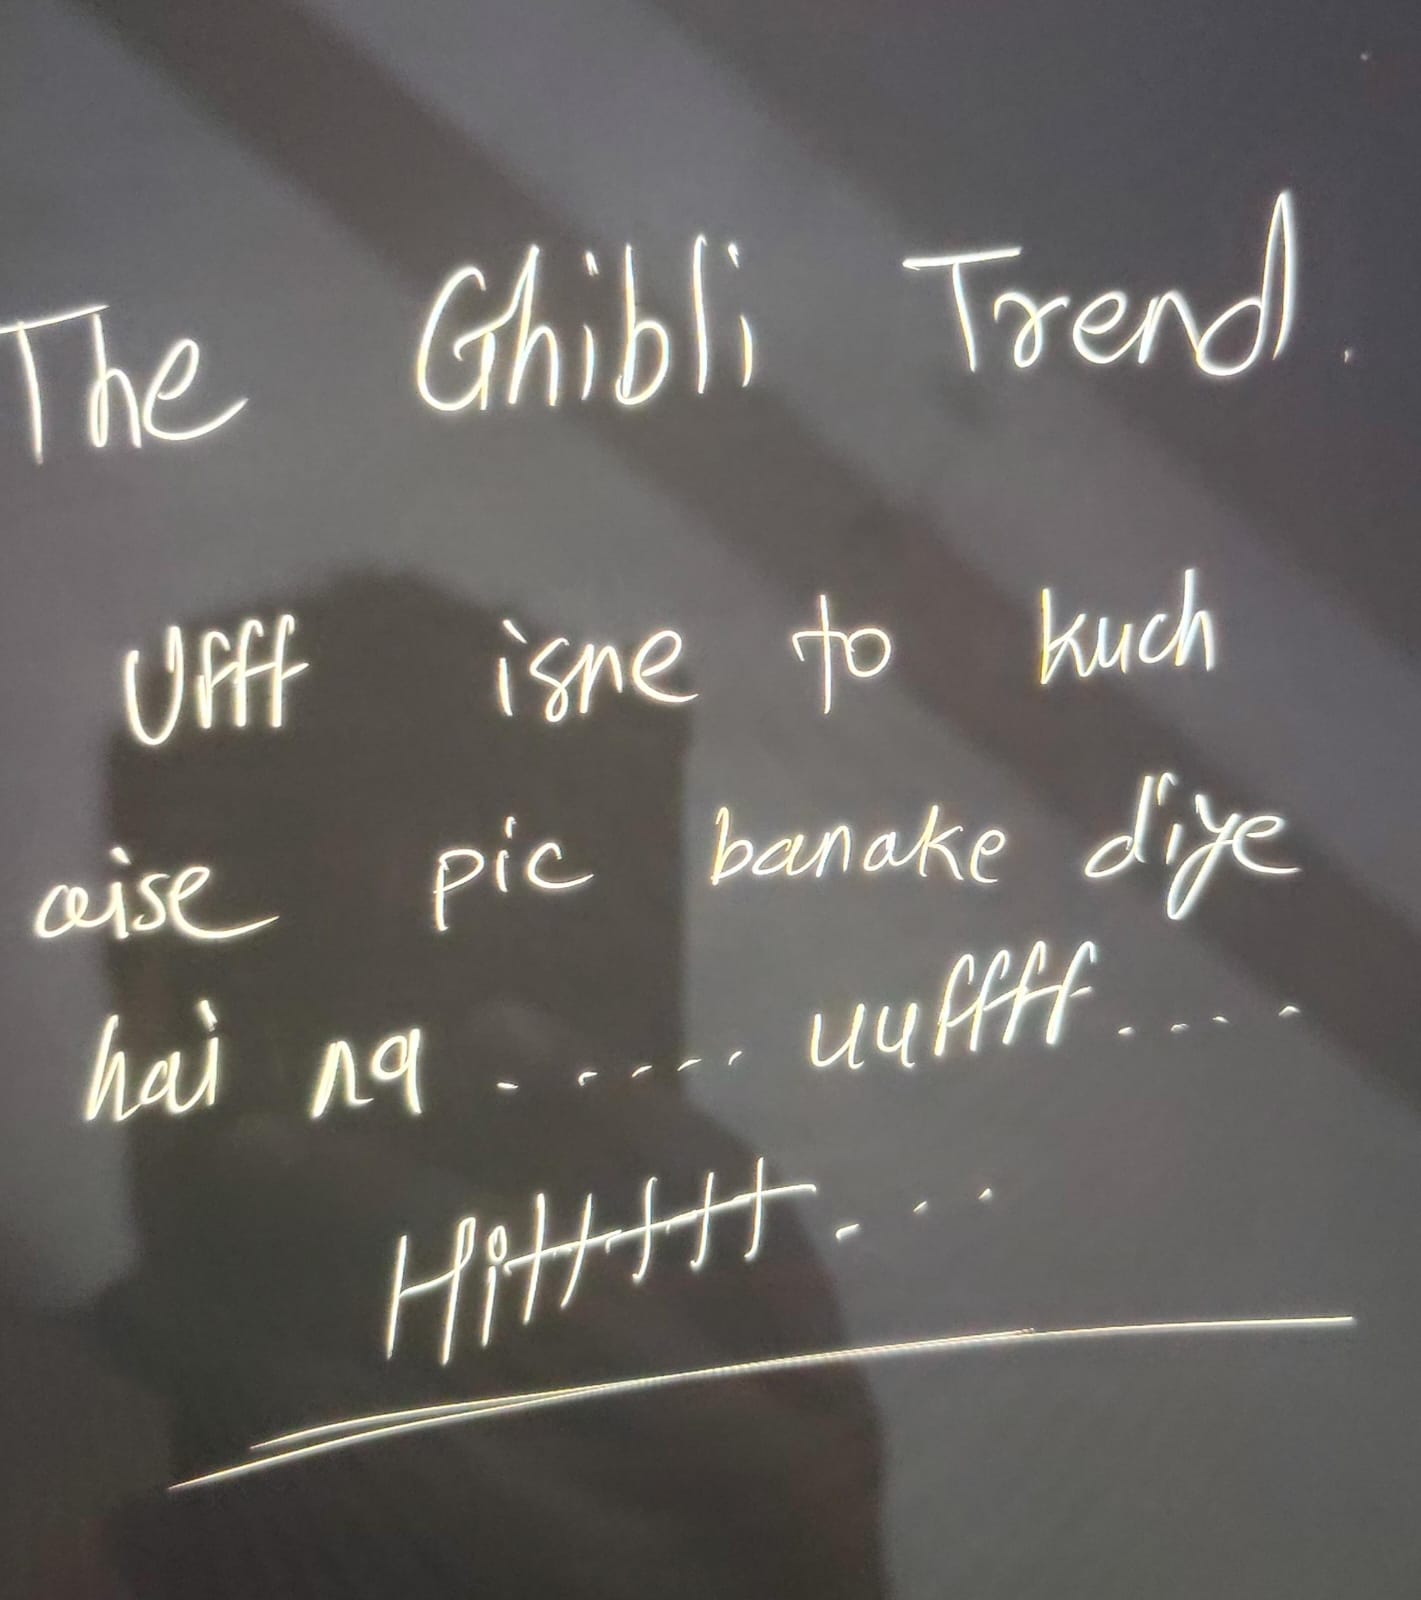 The Ghibli Trend.
Ufff isne to kuch
aise pic banake diye
hai na ..... uuffff....
Hittttt...